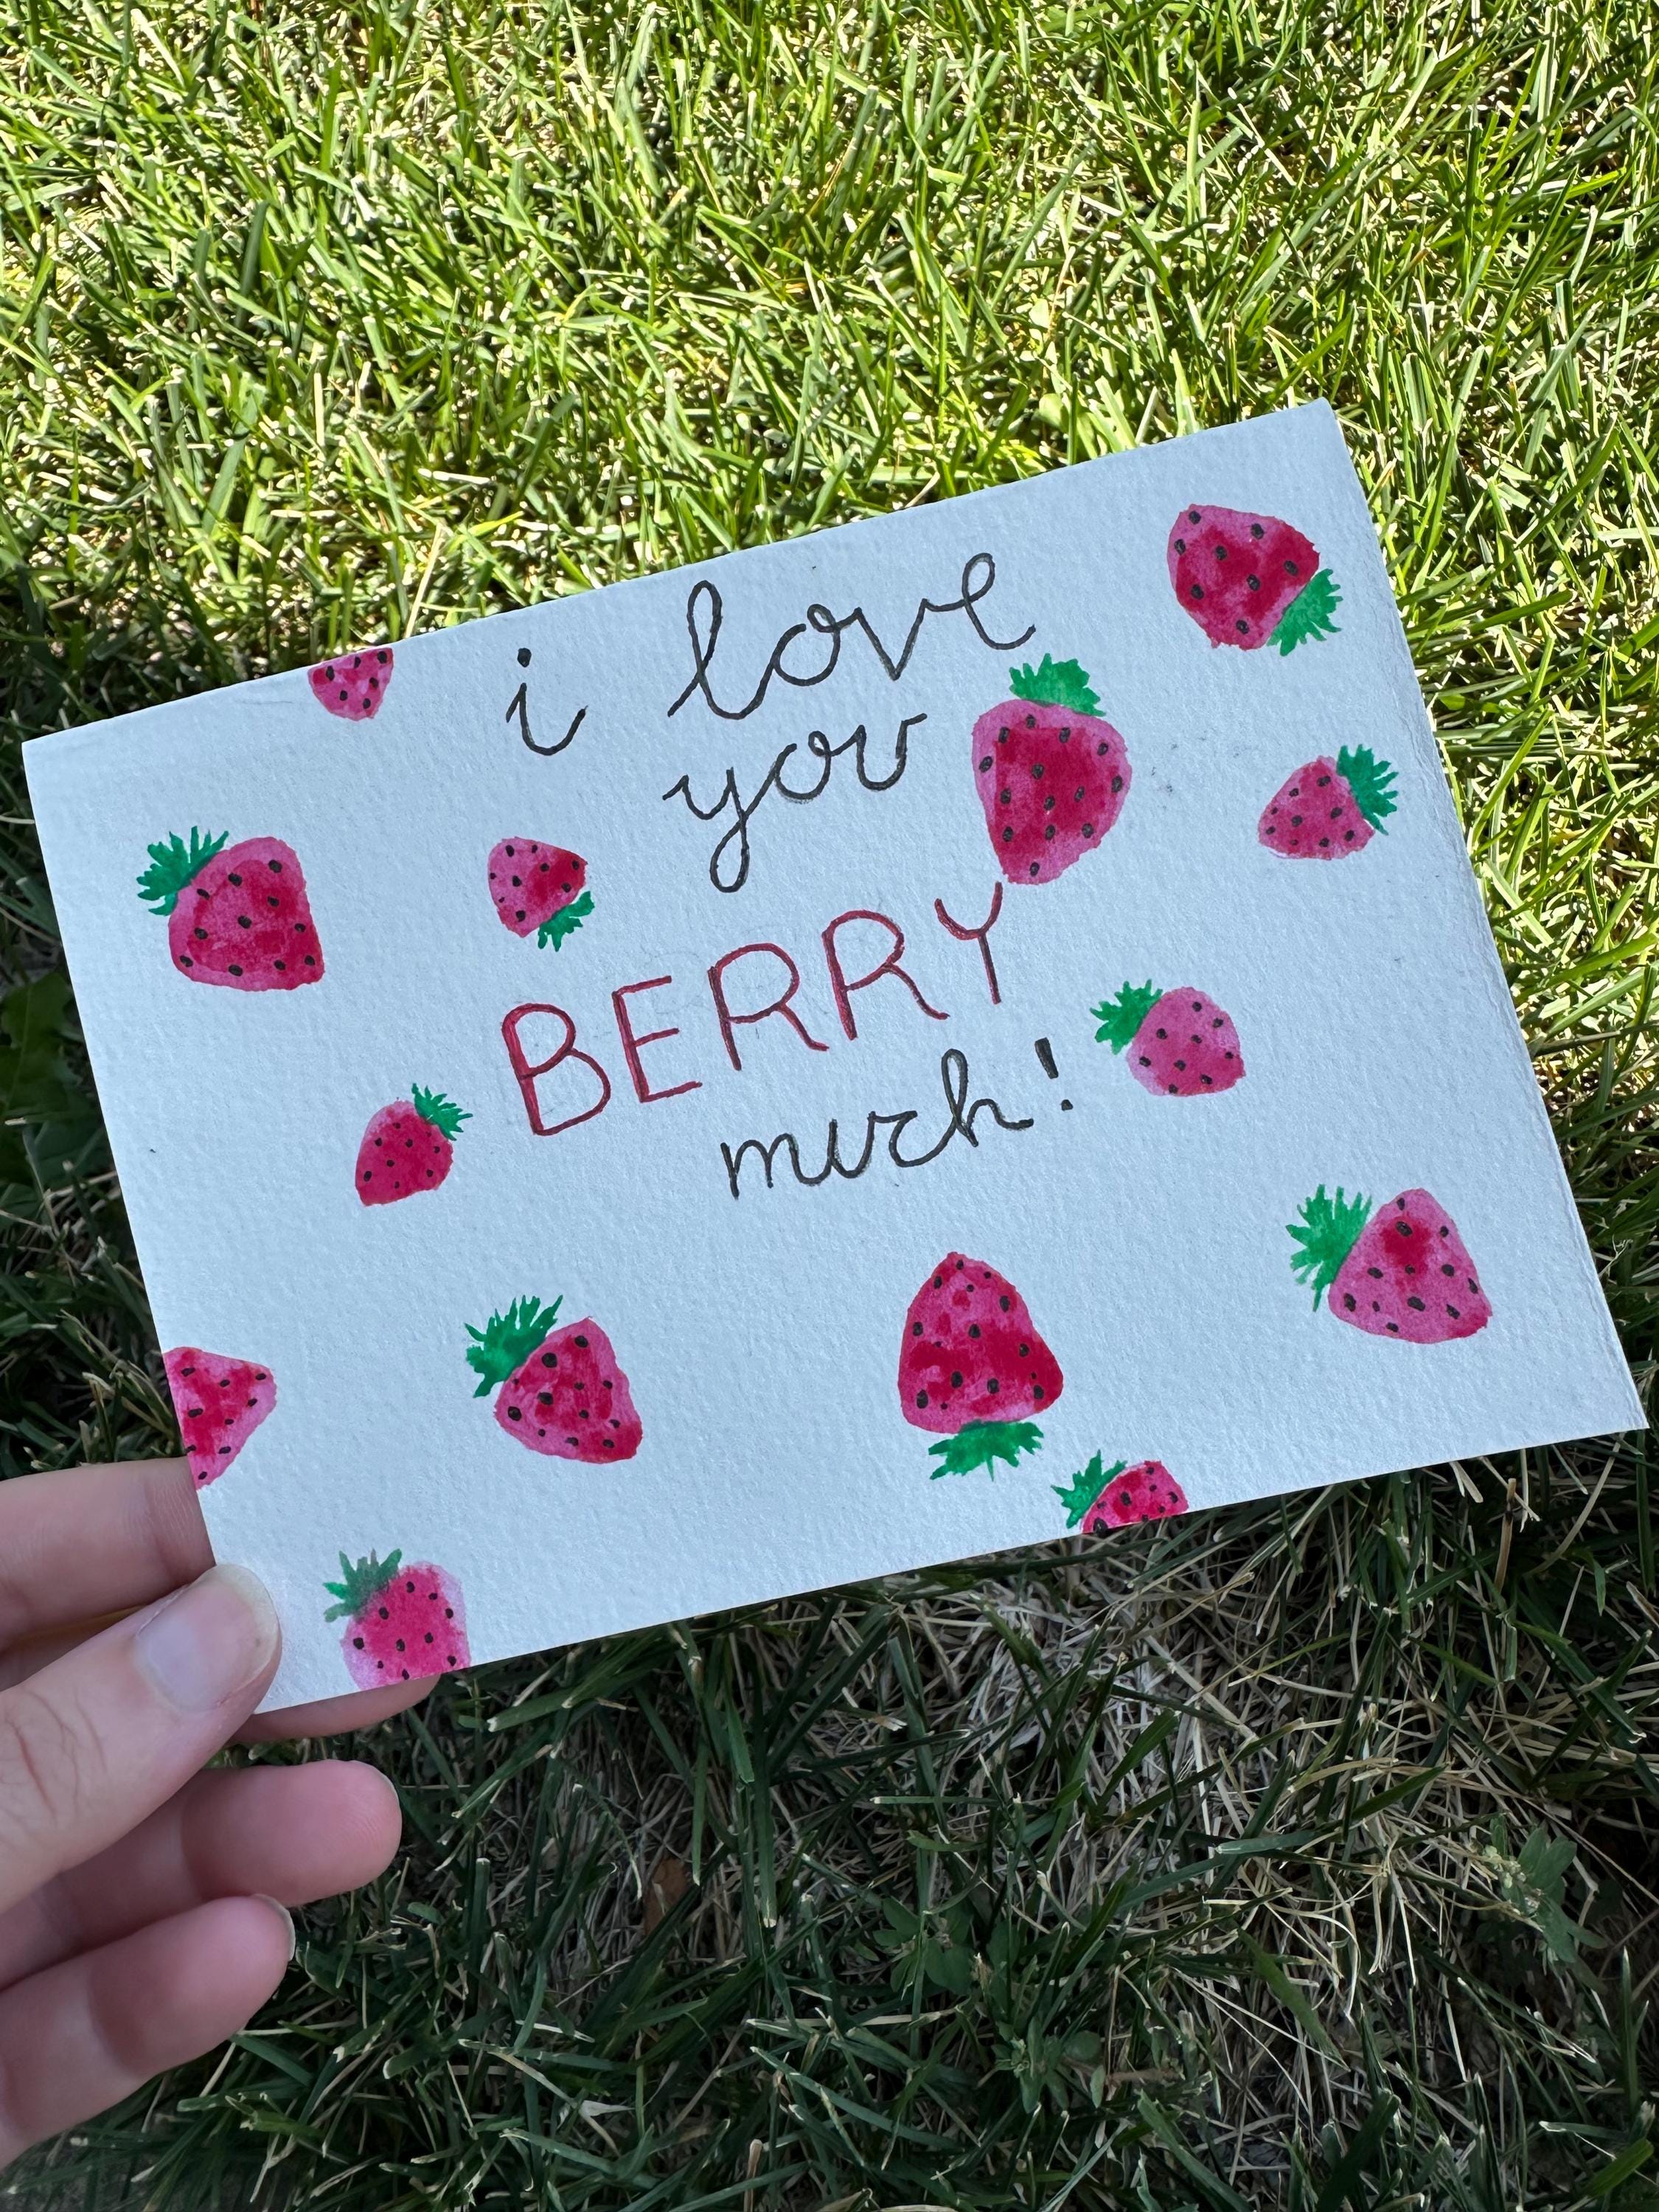 i love
you
BERRY
much!